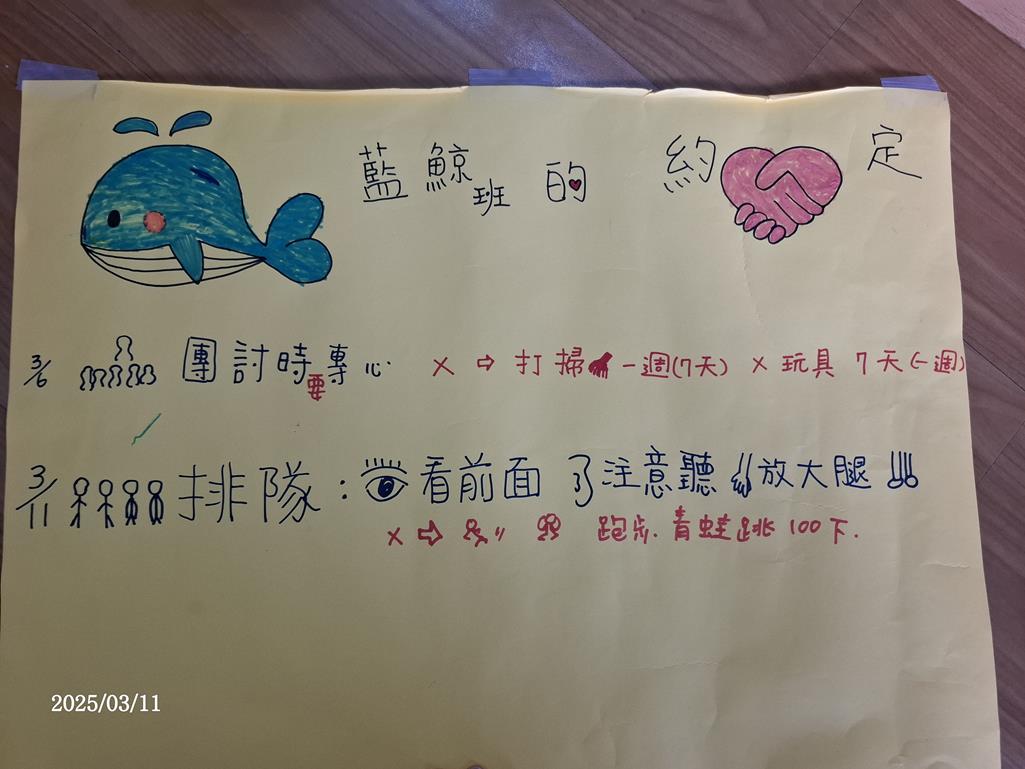 藍鯨班的約定
3/6 團討時要專心 X ⇨ 打掃一週(7天) X 玩具 7天(一週)
3/11 排隊：看前面 注意聽 放大腿
X ⇨ 跑步. 青蛙跳 100下.
2025/03/11